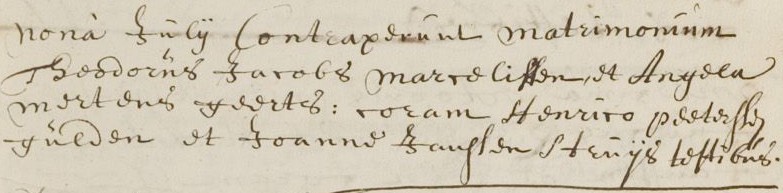 nonà Julÿ Contraxerunt matrimonium
Theodorus Jacobs marcelissen, et Angela
mertens geerts: coram Henrico peeterssen
gulden et Joanne Janssen Struÿs testibus.